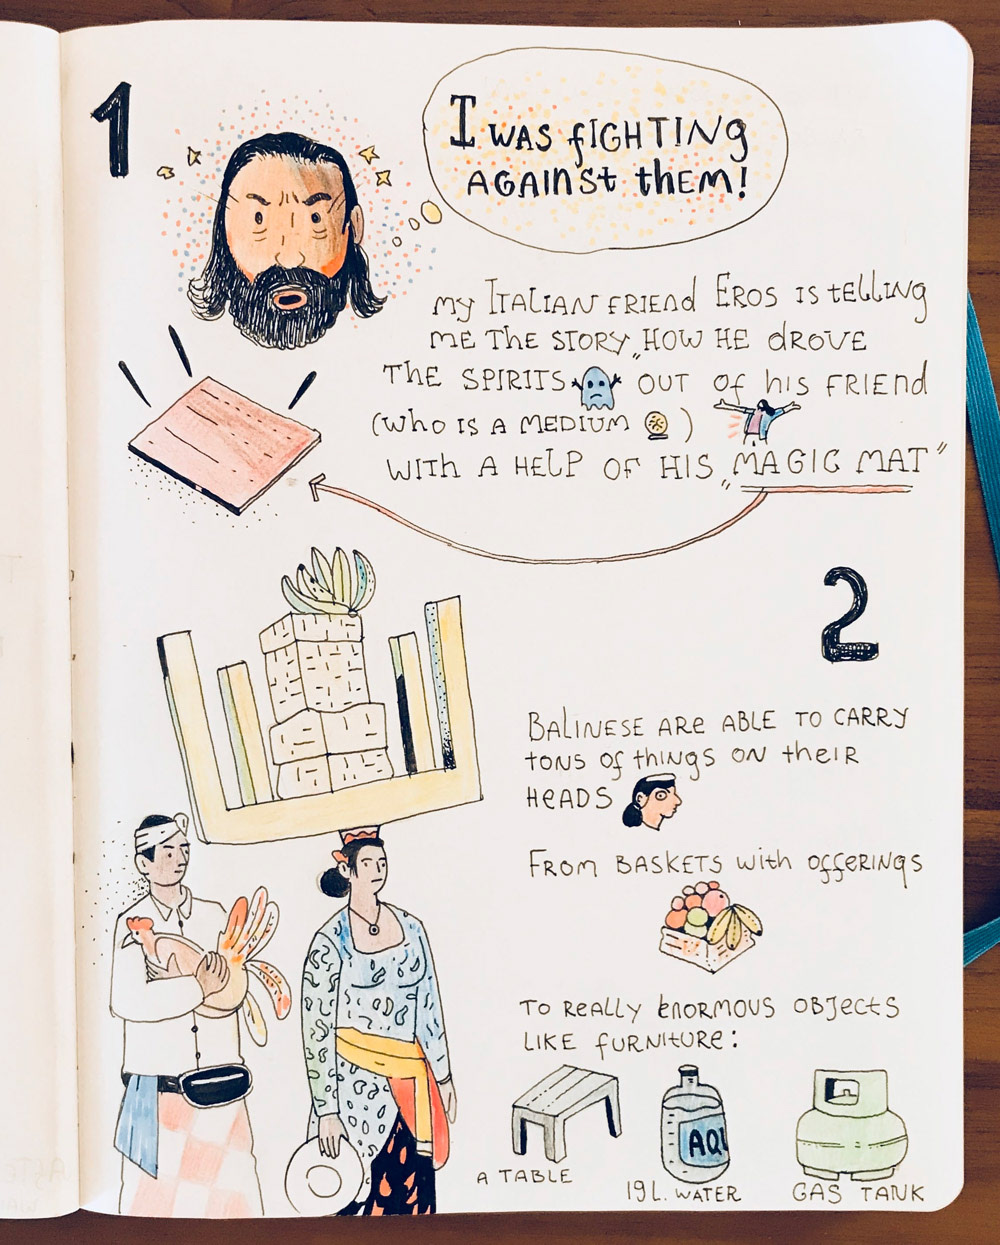 1
I WAS FIGHTING
AGAINST tHEM!
MY ITALIAN FRIEND EROS IS tELLING
ME THE STORY „HOW HE DROVE
THE SPIRITS OUT OF HIS FRIEND
(WHO IS A MEDIUM)
WITH A HELP OF HIS „MAGIC MAT"
2
BALINESE ARE ABLE TO CARRY
tONS OF tHINGS ON tHEIR
HEADS
FROM BASKETS WITH OFFERINGS
TO REALLY ENORMOUS OBJECTS
LIKE FURNITURE:
AQU
A TABLE
19 L. WATER
GAS TANK